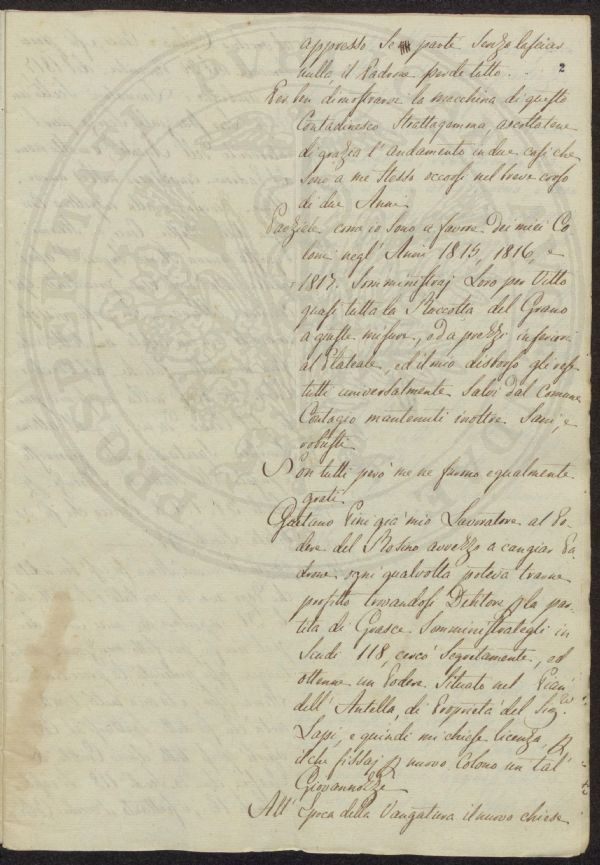 appresso Se parte Senza lasciar
nulla, il Padrone perde tutto.
2
Per ben dimostrare la macchina di questo
Contadinesco Strattagemma, ascoltatene
di grazia l' andamento in due casi che
Sono a me Stesso occorsi nel breve corso
di due Anni.
come io Sono a favore Dei miei Co
loni negl' Anni 1815, 1816, e
1817. Somministraj Loro per Vitto
quasi tutta la Raccolta del Grano
a giuste misure, ed a prezzi inferiori
al Plateale, ed il mio disborso gli
tutti universalmente Salvi dal Comune
Contagio mantenuti inoltre Sani, e
robusti.
Non tutti però me ne furono egualmente
grati.
Gaetano Pini già mio Lavoratore al Po
dere del Rosino avvezzo a cangiar Pa
drone ogni qualvolta poteva trarne
profitto trovandosi Debitore p la par
tita di Grasce Somministrategli in
Scudi 118, cercò Segretamente, ed
ottenne un Podere Situato nel Pian
dell' Antella, di Proprietà del Sig.re
Lapi, e quindi mi chiese licenza, p
il che fissaj p nuovo Colono un tal'
Giovannozzi
All' Epoca della Vangatura il nuovo chiese